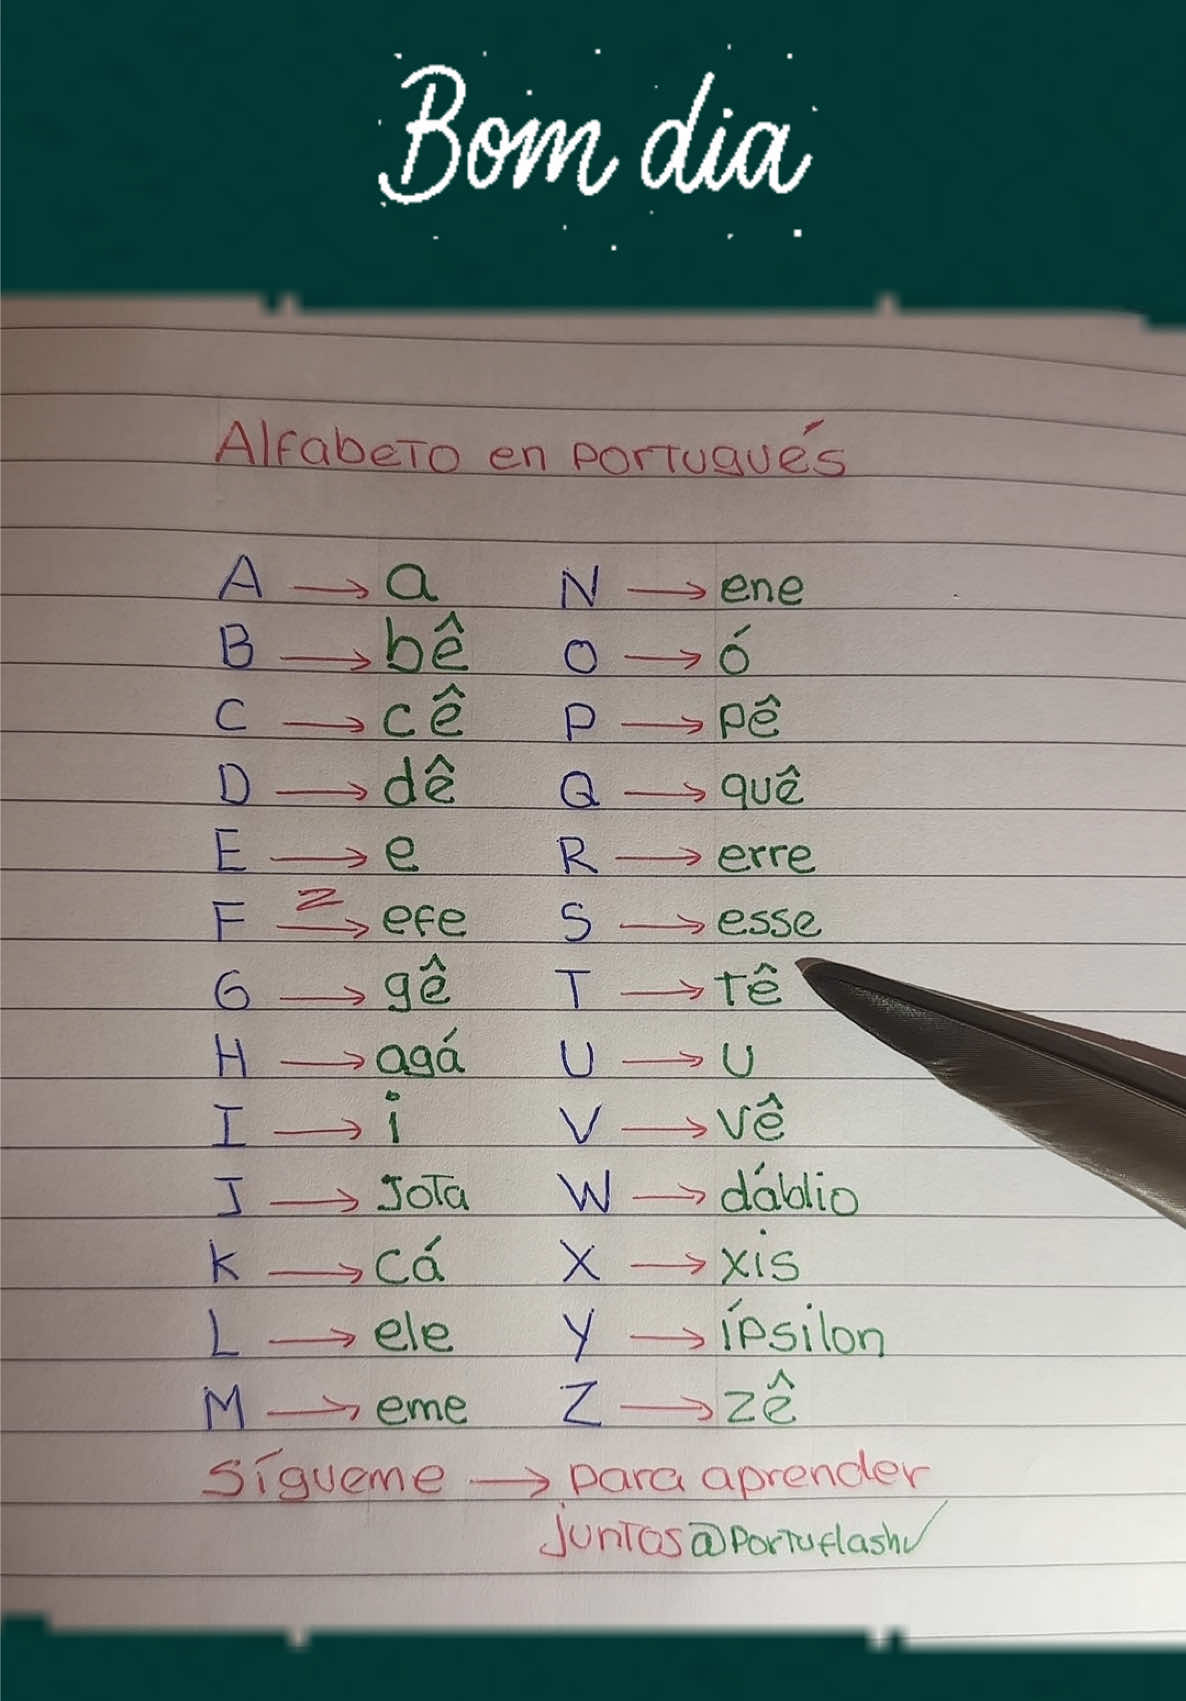 Bom dia
Alfabeto en portugués
A → a N → ene
B → bê O → ó
C → cê P → pê
D → dê Q → quê
E → e R → erre
F → efe S → esse
G → gê T → tê
H → agá U → u
I → i V → vê
J → Jota W → dáblio
K → cá X → xis
L → ele Y → ípsilon
M → eme Z → zê
Sígueme → para aprender
juntos @Portuflash